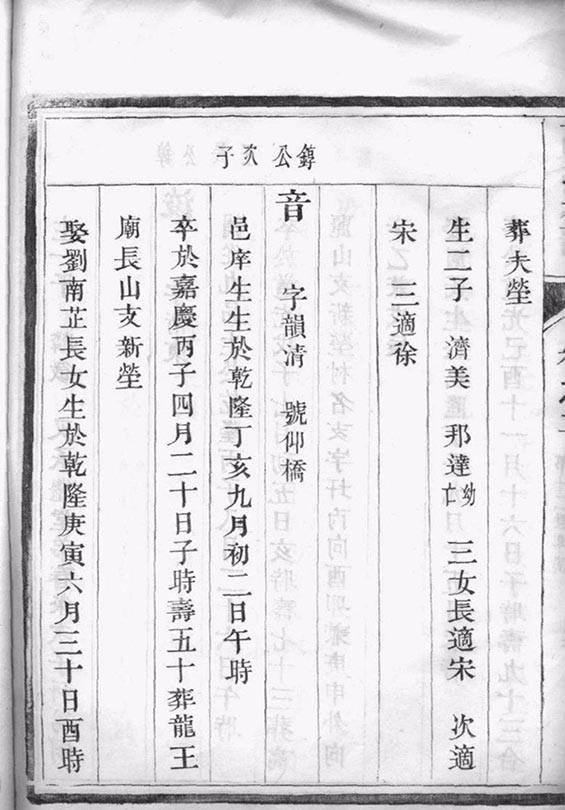 葬夫塋
生二子 濟美 邦達 幼亡 三女長適宋 次適
宋 三適徐
公次子
音 字韻清 號仰橋
邑庠生生於乾隆丁亥九月初二日午時
卒於嘉慶丙子四月二十日子時壽五十葬龍王
廟長山亥新塋
娶劉南芷長女生於乾隆庚寅六月三十日酉時